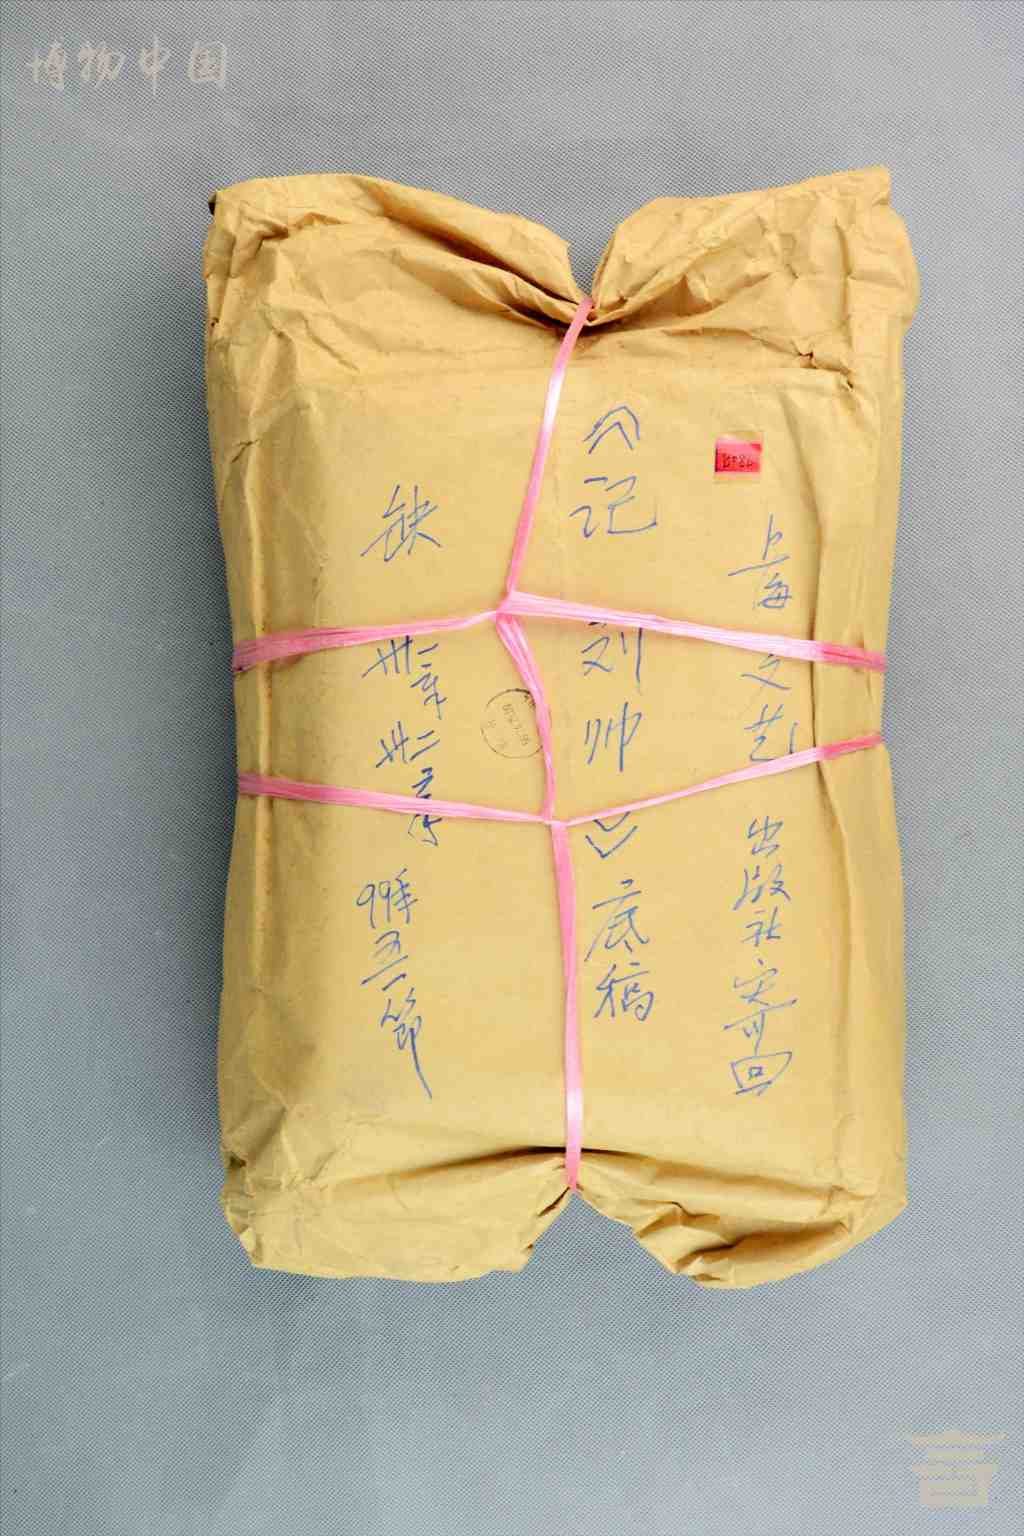 博物中国
上海文艺出版社寄回
《记刘帅》底稿
缺
卅一章 卅二章
99年 五一节